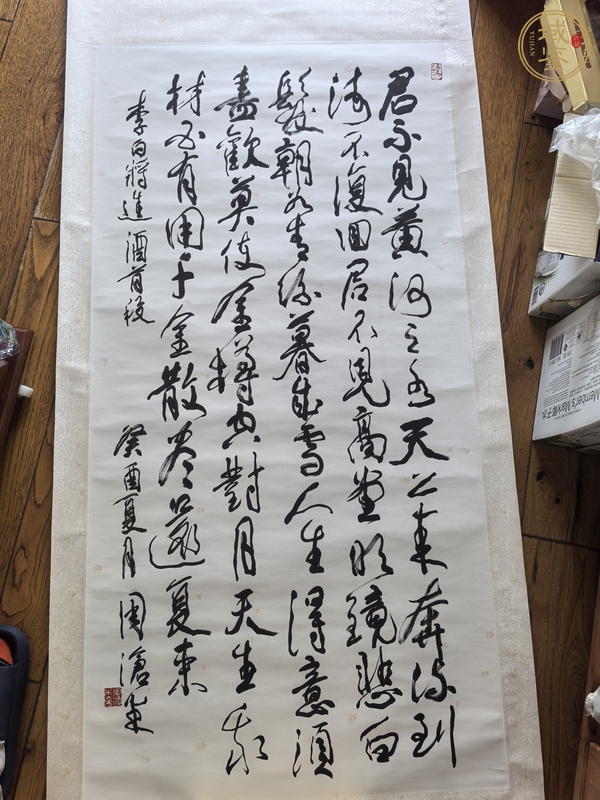 君不見黄河之水天上来奔流到
海不復回君不見高堂明鏡悲白
髮朝如青絲暮成雪人生得意須
盡歡莫使金樽空對月天生我
材必有用千金散尽還复来
李白將進酒首段
癸酉夏月 周滄米
YUJIAN
Member's Mark